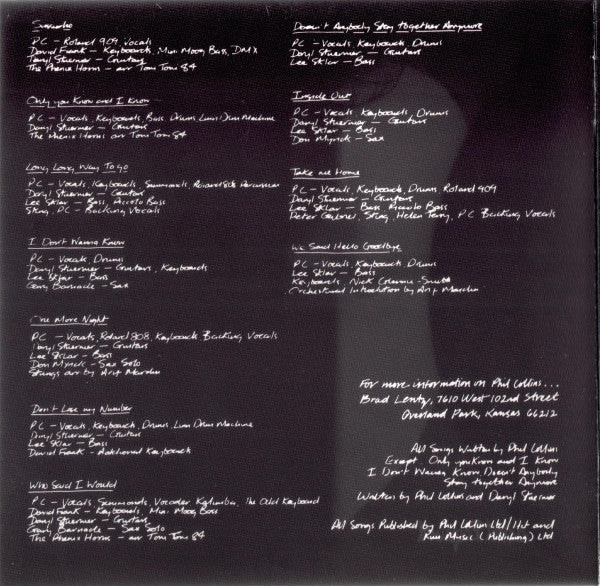 Sussudio
P.C. - Roland 909 Vocals
David Frank - Keyboards, Mini Moog Bass, DMX
Daryl Stuermer - Guitars
The Phenix Horns - arr Tom Tom 84
Only you Know and I Know
P.C - Vocals, Keyboards, Bass Drums, Linn Drum Machine
Daryl Stuermer - Guitars
The Phenix Horns arr Tom Tom 84
Long Long Way To Go
P.C - Vocals, Keyboards, Simmonds, Roland 808 Percussion
Daryl Stuermer - Guitars
Lee Sklar - Bass, Piccolo Bass
Sting, P.C - Backing Vocals
I Don't Wanna Know
P.C - Vocals, Drums
Daryl Stuermer - Guitars, Keyboards
Lee Sklar - Bass
Gary Barnacle - Sax
One More Night
P.C - Vocals, Roland 808, Keyboards Backing Vocals
Daryl Stuermer - Guitars
Lee Sklar - Bass
Don Myrick - Sax Solo
Strings arr by Arif Mardin
Don't Lose my Number
P.C - Vocals, Keyboards, Drums, Linn Drum Machine
Daryl Stuermer - Guitars
Lee Sklar - Bass
David Frank - Additional Keyboards
Who Said I Would
P.C - Vocals Simmonds, Vocoder Kalimba, The Odd Keyboard
David Frank - Keyboards, Mini Moog Bass
Daryl Stuermer - Guitars
Gary Barnacle - Sax Solo
The Phenix Horns - arr Tom Tom 84
Doesn't Anybody Stay together Anymore
P.C - Vocals, Keyboards, Drums
Daryl Stuermer - Guitars
Lee Sklar - Bass
Inside Out
P.C - Vocals, Keyboards, Drums
Daryl Stuermer - Guitars
Lee Sklar - Bass
Don Myrick - Sax
Take me Home
P.C - Vocals, Keyboards, Drums Roland 909
Daryl Stuermer - Guitars
Lee Sklar - Bass Piccolo Bass
Peter Gabriel, Sting, Helen Terry, P.C Backing Vocals
We Said Hello Goodbye
P.C - Vocals Keyboards Drums
Lee Sklar - Bass
Keyboards Nick Glennie-Smith
Orchestral Introduction by Arif Mardin
For more information on Phil Collins...
Brad Lentz, 7610 West 102nd Street
Overland Park, Kansas 66212
All Songs Written by Phil Collins
Except Only you Know and I Know
I Don't Wanna Know Doesn't Anybody
Stay together Anymore
Written by Phil Collins and Daryl Stuermer
All Songs Published by Phil Collins Ltd/Hit and
Run Music (Publishing) Ltd